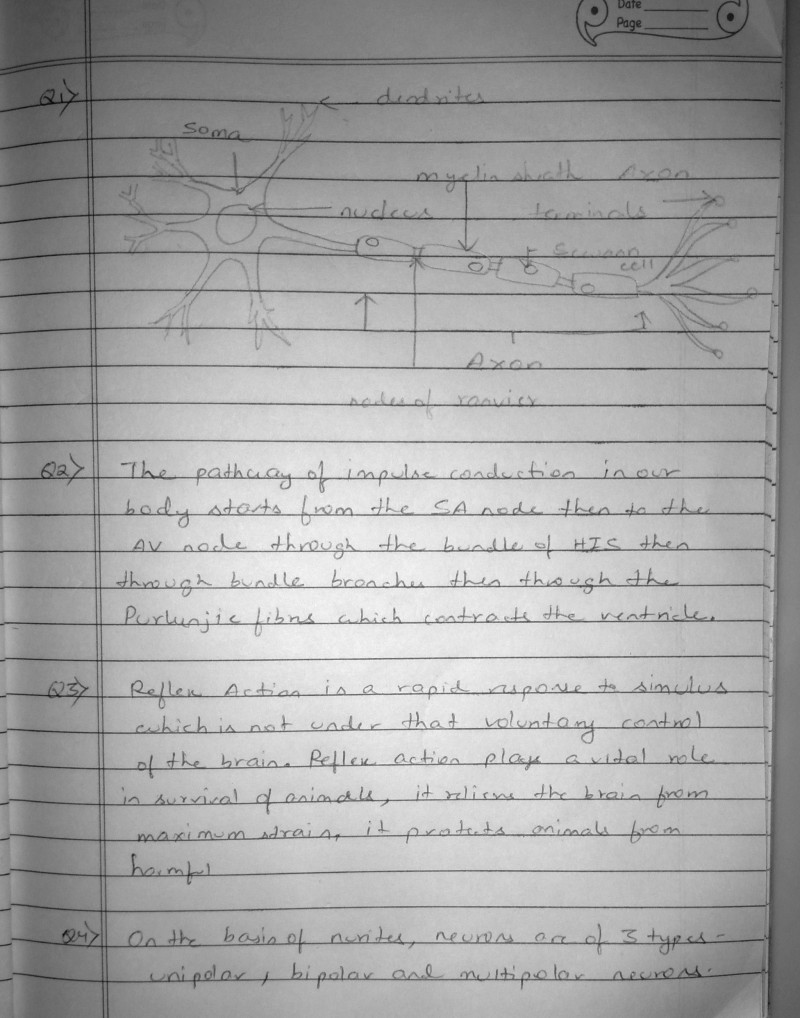 Date
Page
Q1)
dendrites
Soma
myelin sheath Axon
nucleus terminals
Schwann
cell
Axon
nodes of ranvier
Q2) The pathway of impulse conduction in our
body starts from the SA node then to the
AV node through the bundle of HIS then
through bundle branches then through the
Purkunjic fibres which contracts the ventricle.
Q3) Reflex Action is a rapid response to simulus
which is not under that voluntary control
of the brain. Reflex action plays a vital role
in survival of animals, it relieves the brain from
maximum strain, it protects animals from
harmful
Q4) On the basis of nurites, neurons are of 3 types -
unipolar, bipolar and multipolar neurons.